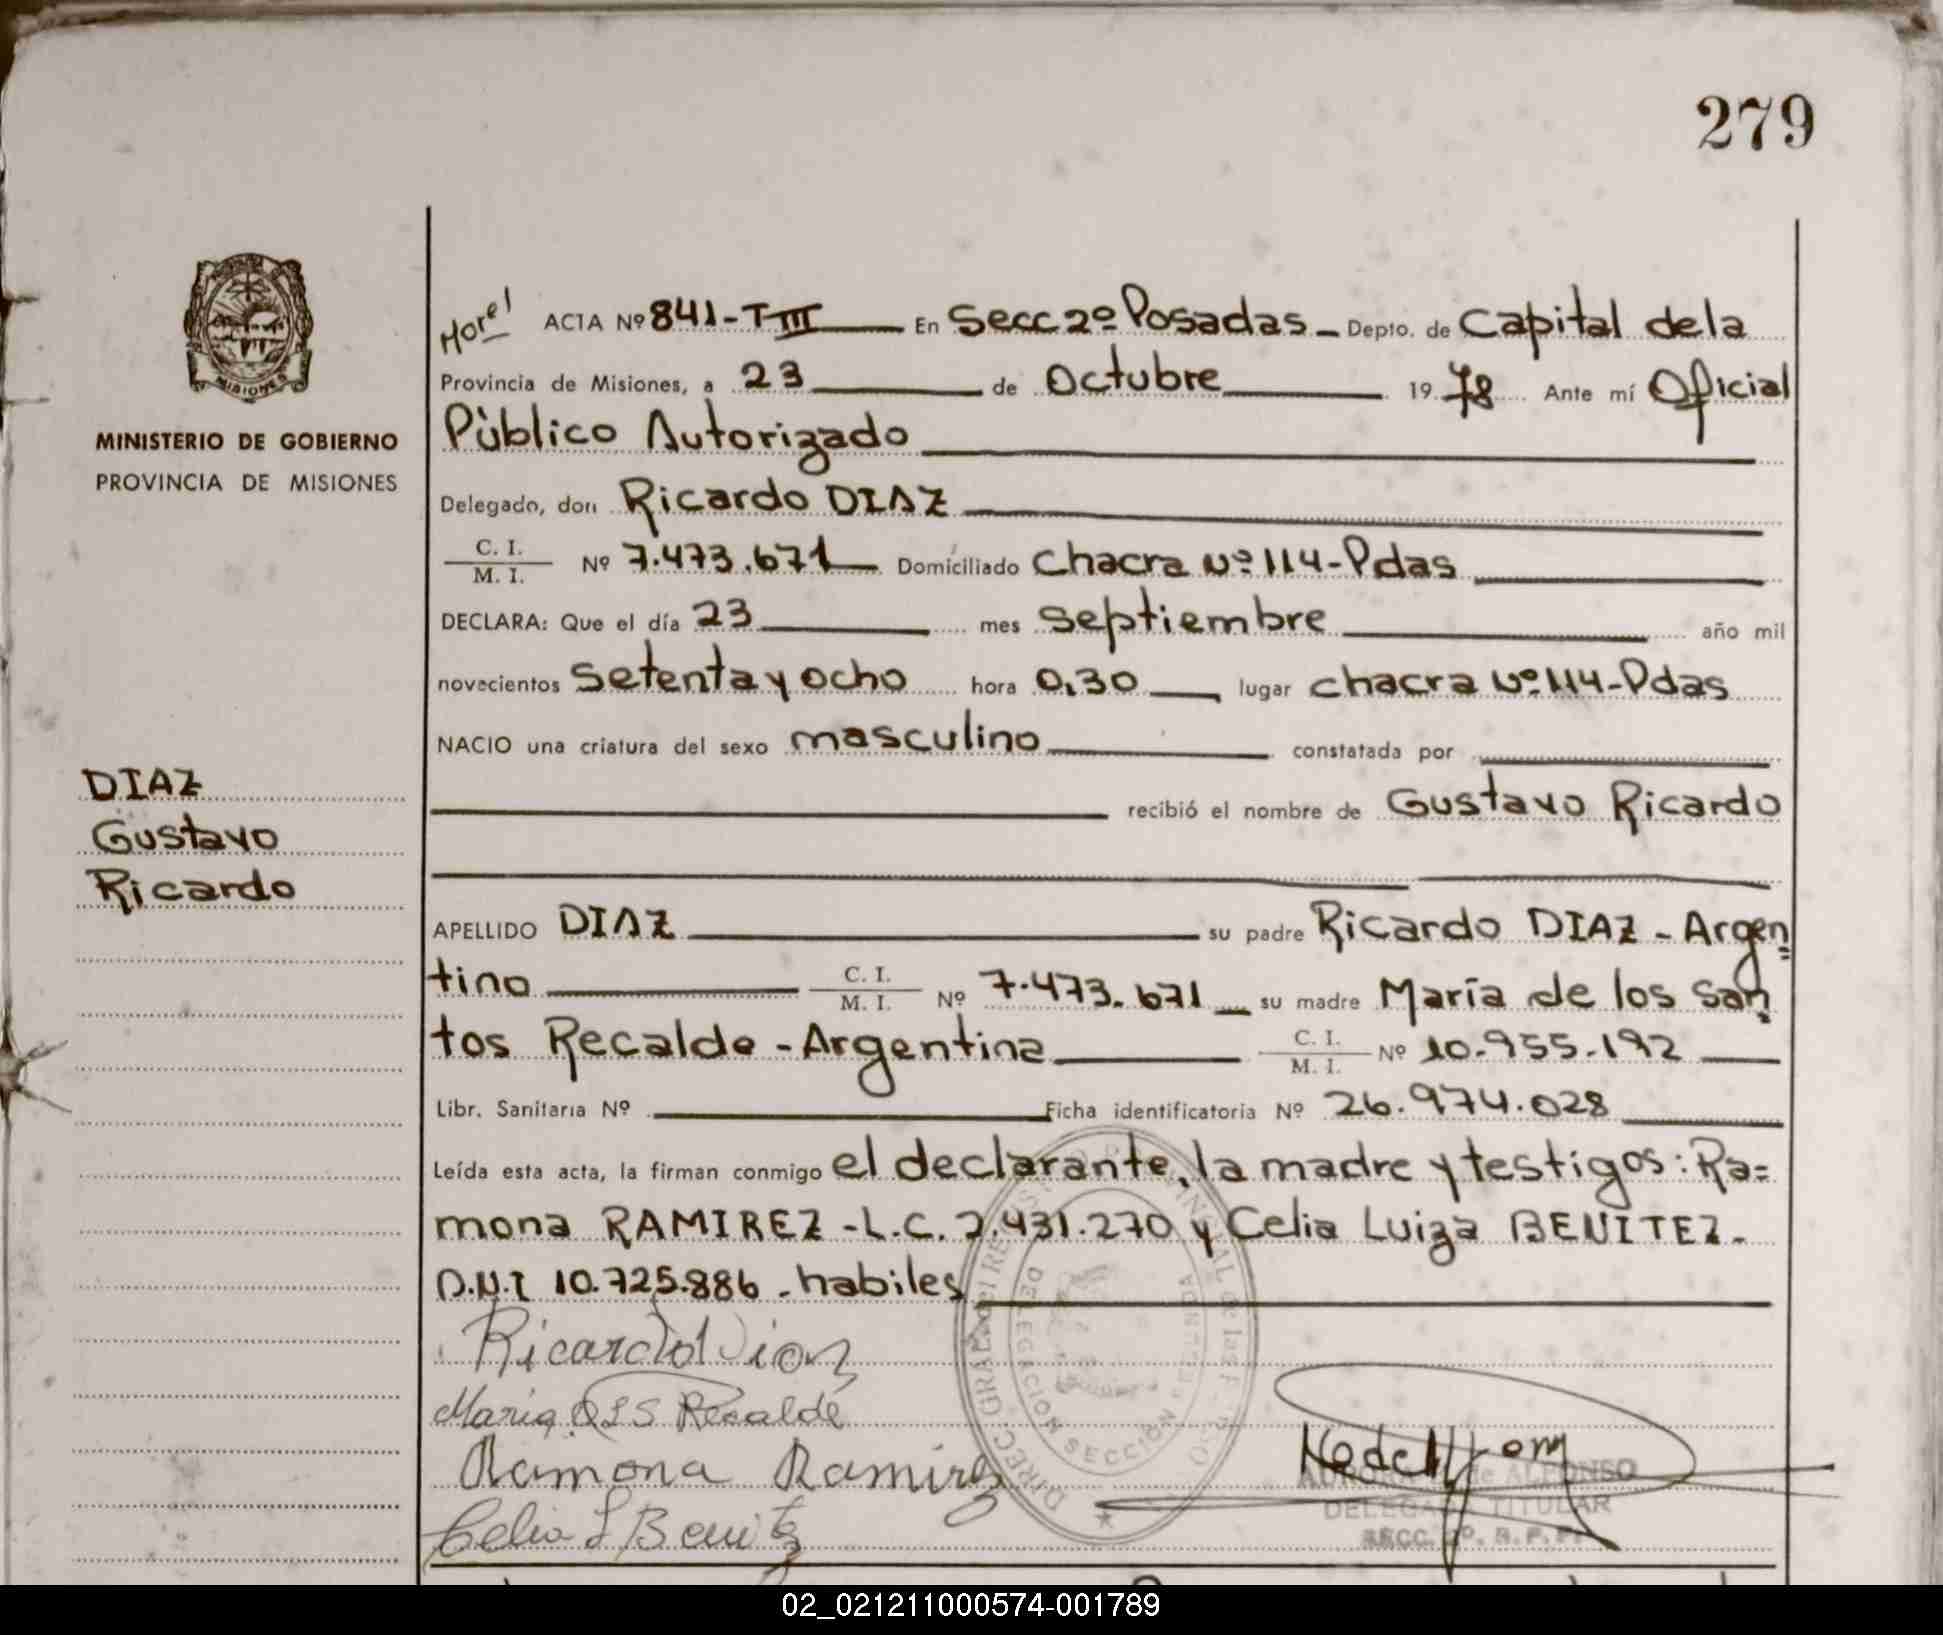 279
MISIONES
MINISTERIO DE GOBIERNO
PROVINCIA DE MISIONES
DIAZ
Gustavo
Ricardo
ACTA Nº 841-TIII En Secc 2º Posadas - Depto. de Capital de la
Provincia de Misiones, a 23 de Octubre 19 78 Ante mí Oficial
Pùblico Autorizado
Delegado, don Ricardo DIAZ
C. I.
M. I. Nº 7.473.671 Domiciliado Chacra Nº 114-Pdas
DECLARA: Que el día 23 mes septiembre año mil
novecientos setenta y ocho hora 0,30 lugar chacra Nº 114-Pdas
NACIO una criatura del sexo masculino constatada por
recibió el nombre de Gustavo Ricardo
APELLIDO DIAZ su padre Ricardo DIAZ - Argen=
tino C. I.
M. I. Nº 7.473.671 su madre María de los san=
tos Recalde - Argentina C. I.
M. I. Nº 10.955.192
Libr. Sanitaria Nº Ficha identificatoria Nº 26.974.028
Leída esta acta, la firman conmigo el declarante, la madre y testigos: Ra=
mona RAMIREZ - L.C. 2.431.270 y Celia Luiza BENITEZ.
D.N.I 10.725.886 - habiles
Ricardo Diaz
Maria D L S Recalde
Ramona Ramirez
Celia L Benitez
DIREC. GRAL. del REGISTRO PROVINCIAL de las
DELEGACION SECCION
de ALFONSO
DELEGADA TITULAR
SECC. 2º. R. P. P.
02_021211000574-001789